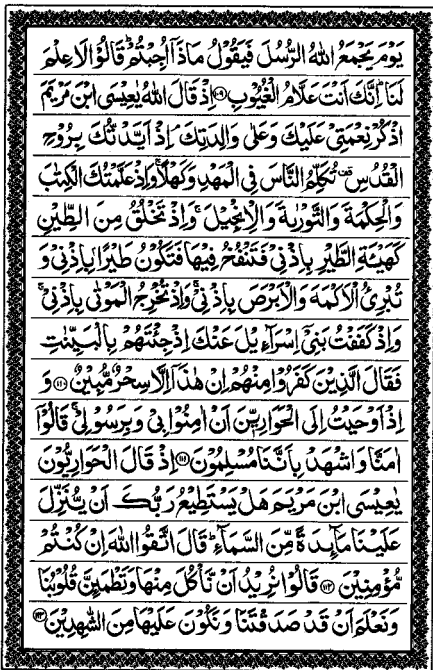 يَوۡمَ يَجۡمَعُ اللّٰهُ الرُّسُلَ فَيَقُوۡلُ مَاذَاۤ اُجِبۡتُمۡؕ قَالُوۡا لَا عِلۡمَ
لَنَاؕ اِنَّكَ اَنۡتَ عَلَّامُ الۡغُيُوۡبِ ﴿۱۰۹﴾ اِذۡ قَالَ اللّٰهُ يٰعِيۡسَى ابۡنَ مَرۡيَمَ
اذۡكُرۡ نِعۡمَتِىۡ عَلَيۡكَ وَعَلٰى وَالِدَتِكَ اِذۡ اَيَّدۡتُّكَ بِرُوۡحِ
الۡقُدُسِ تُكَلِّمُ النَّاسَ فِى الۡمَهۡدِ وَكَهۡلًا ۚ وَاِذۡ عَلَّمۡتُكَ الۡكِتٰبَ
وَالۡحِكۡمَةَ وَالتَّوۡرٰٮةَ وَالۡاِنۡجِيۡلَ ۚ وَاِذۡ تَخۡلُقُ مِنَ الطِّيۡنِ
كَهَيۡئَةِ الطَّيۡرِ بِاِذۡنِىۡ فَتَنۡفُخُ فِيۡهَا فَتَكُوۡنُ طَيۡرًۢا بِاِذۡنِىۡ وَ
تُبۡرِئُ الۡاَكۡمَهَ وَالۡاَبۡرَصَ بِاِذۡنِىۡ ۚ وَاِذۡ تُخۡرِجُ الۡمَوۡتٰى بِاِذۡنِىۡ ۚ
وَاِذۡ كَفَفۡتُ بَنِىۡۤ اِسۡرَآءِيۡلَ عَنۡكَ اِذۡ جِئۡتَهُمۡ بِالۡبَيِّنٰتِ
فَقَالَ الَّذِيۡنَ كَفَرُوۡا مِنۡهُمۡ اِنۡ هٰذَاۤ اِلَّا سِحۡرٌ مُّبِيۡنٌ ﴿۱۱۰﴾ وَ
اِذۡ اَوۡحَيۡتُ اِلَى الۡحَوَارِيّٖنَ اَنۡ اٰمِنُوۡا بِىۡ وَبِرَسُوۡلِىۡ ۚ قَالُوۡۤا
اٰمَنَّا وَاشۡهَدۡ بِاَنَّنَا مُسۡلِمُوۡنَ ﴿۱۱۱﴾ اِذۡ قَالَ الۡحَوَارِيُّوۡنَ
يٰعِيۡسَى ابۡنَ مَرۡيَمَ هَلۡ يَسۡتَطِيۡعُ رَبُّكَ اَنۡ يُّنَزِّلَ
عَلَيۡنَا مَآٮِٕدَةً مِّنَ السَّمَآءِؕ قَالَ اتَّقُوا اللّٰهَ اِنۡ كُنۡتُمۡ
مُّؤۡمِنِيۡنَ ﴿۱۱۲﴾ قَالُوۡا نُرِيۡدُ اَنۡ نَّاۡكُلَ مِنۡهَا وَتَطۡمَٮِٕنَّ قُلُوۡبُنَا
وَنَعۡلَمَ اَنۡ قَدۡ صَدَقۡتَنَا وَنَكُوۡنَ عَلَيۡهَا مِنَ الشّٰهِدِيۡنَ ﴿۱۱۳﴾